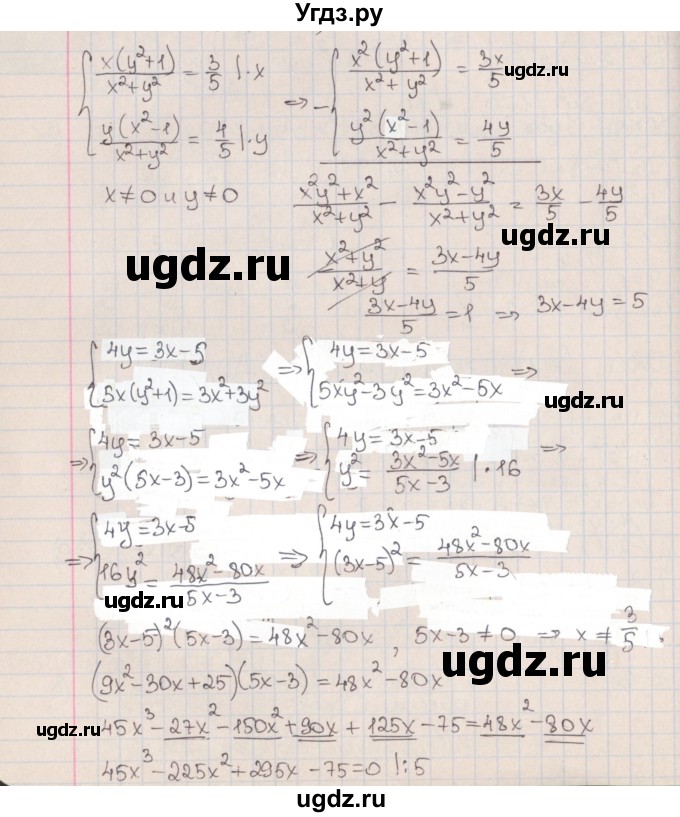 Угдз.ру
{ x(y²+1)/(x²+y²) = 3/5 |·x ⇒ - { x²(y²+1)/(x²+y²) = 3x/5
{ y(x²-1)/(x²+y²) = 4/5 |·y { y²(x²-1)/(x²+y²) = 4y/5
x≠0 и y≠0 (x²y²+x²)/(x²+y²) - (x²y²-y²)/(x²+y²) = 3x/5 - 4y/5
ugdz.ru
ugdz.ru
(x²+y²)/(x²+y) = (3x-4y)/5
(3x-4y)/5 = 1 ⇒ 3x-4y=5
{ 4y=3x-5 ⇒ { 4y=3x-5 ⇒
{ 5x(y²+1)=3x²+3y² { 5xy²-3y²=3x²-5x
ugdz.ru
⇒ { 4y=3x-5 ⇒ { 4y=3x-5 ⇒
{ y²(5x-3)=3x²-5x { y²= (3x²-5x)/(5x-3) |·16
⇒ { 4y=3x-5 ⇒ { 4y=3x-5
{ 16y²= (48x²-80x)/(5x-3) { (3x-5)²= (48x²-80x)/(5x-3)
ugdz.ru
(3x-5)²(5x-3)=48x²-80x, 5x-3≠0 ⇒ x≠3/5.
ugdz.ru
(9x²-30x+25)(5x-3)=48x²-80x
ugdz.ru
45x³-27x²-150x²+90x+125x-75=48x²-80x
45x³-225x²+295x-75=0 |:5
ugdz.ru
ugdz.ru